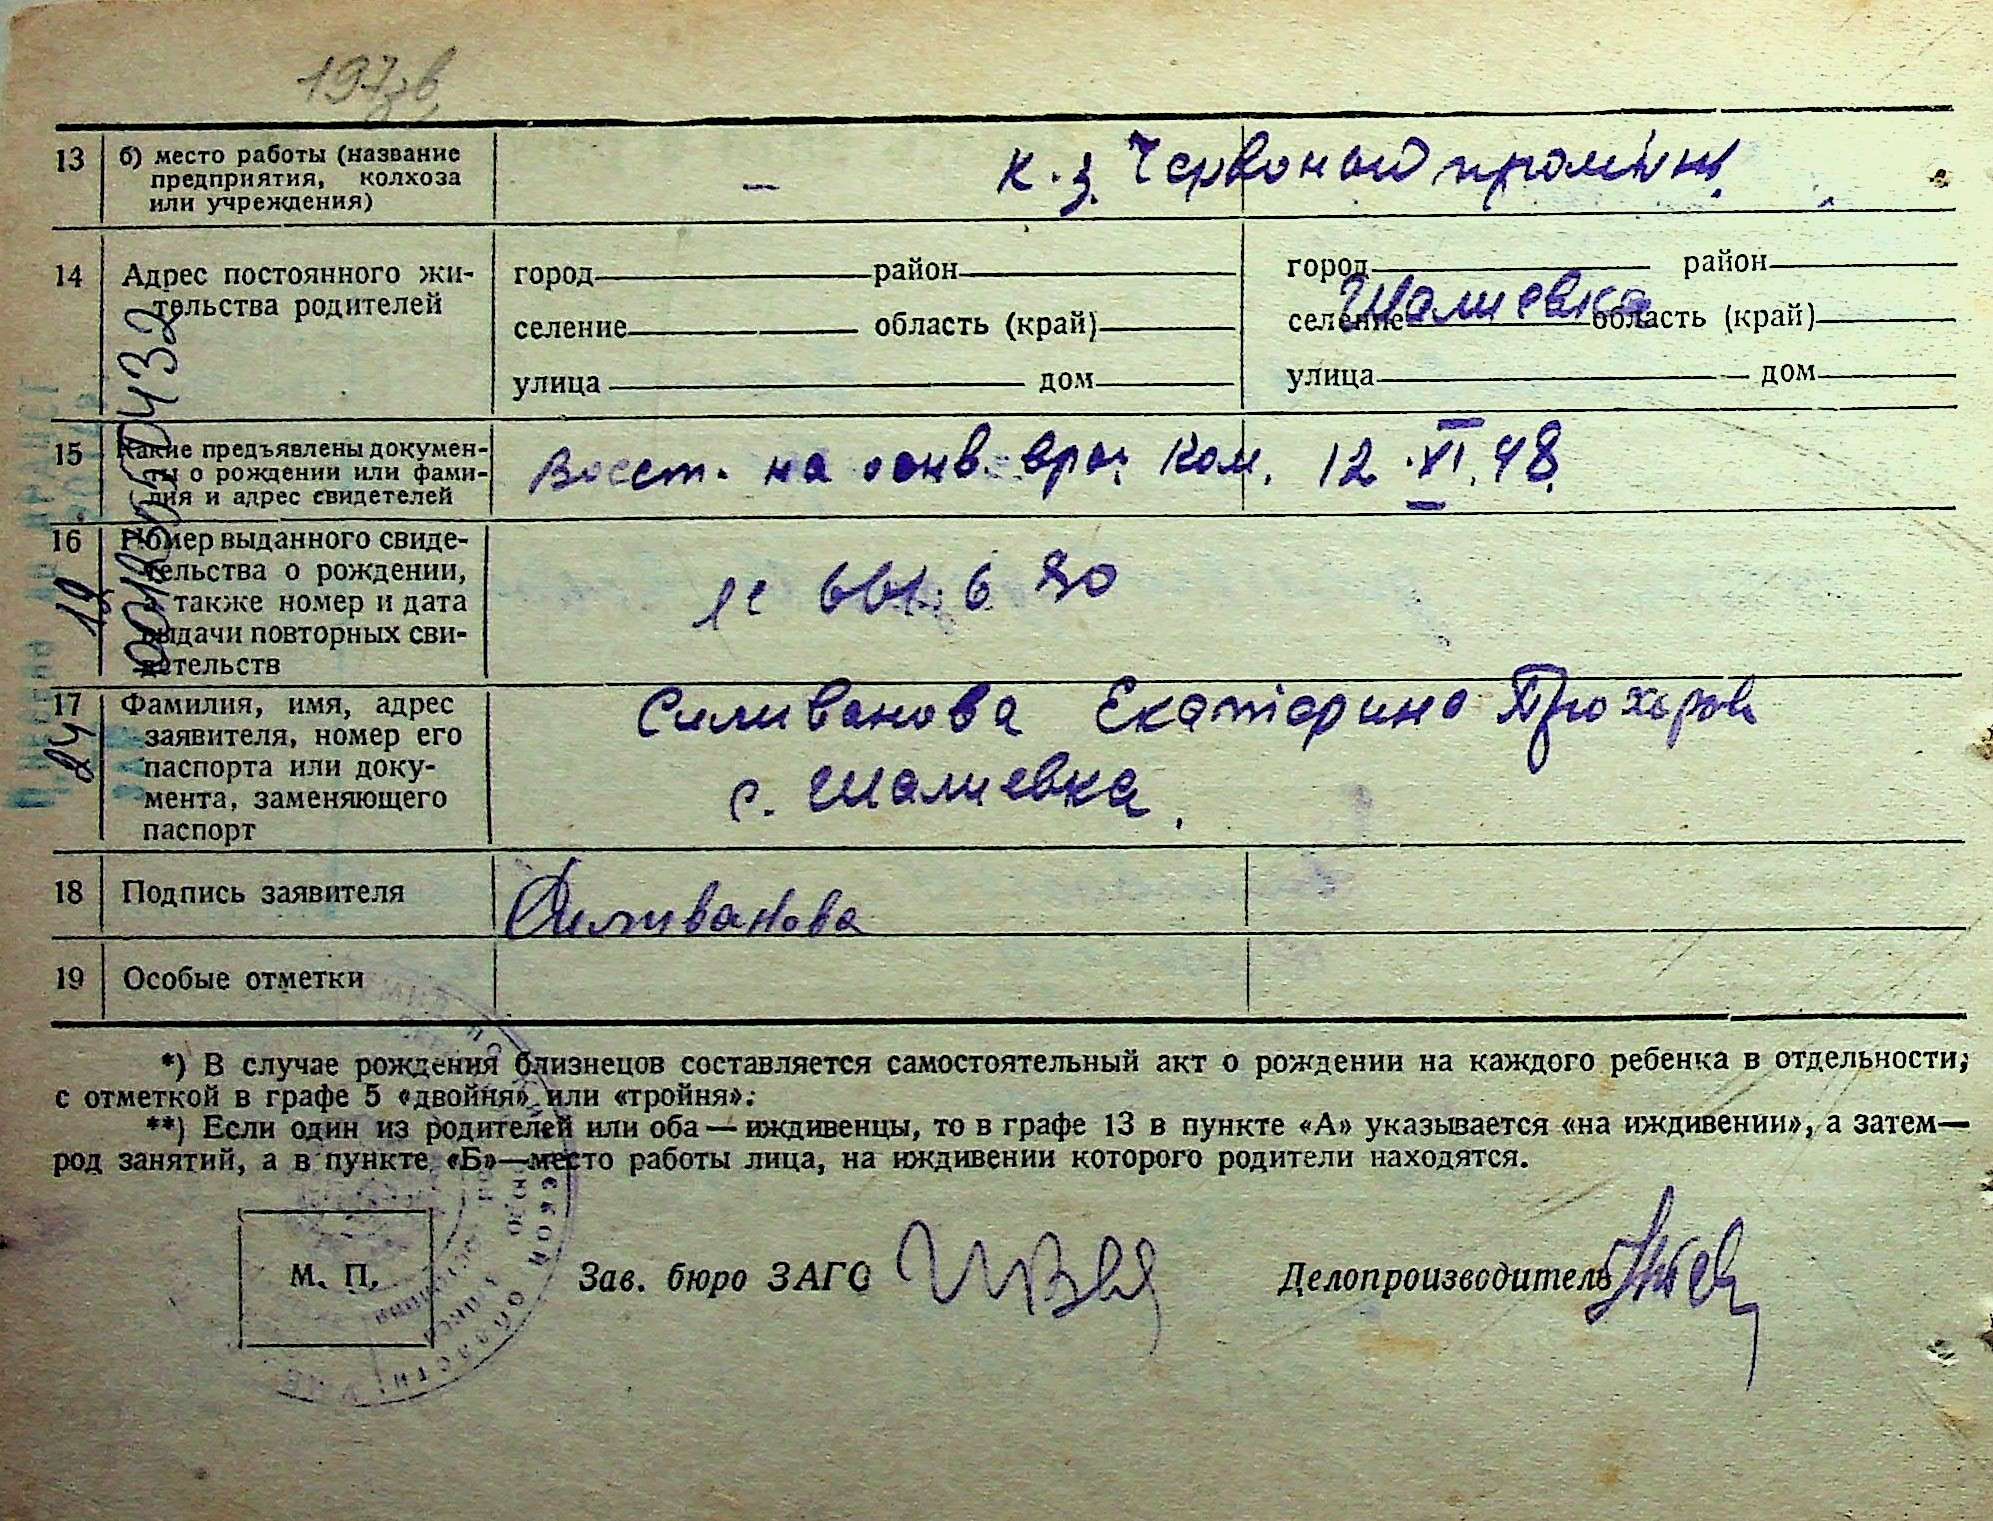 197зв
13 б) место работы (название
предприятия, колхоза
или учреждения)
— к.з. Червоный промінь
14 Адрес постоянного жи-
тельства родителей
город район
селение область (край)
улица дом
город район
селение Шалиевка область (край)
улица дом
15 Какие предъявлены докумен-
ты о рождении или фами-
лия и адрес свидетелей
Восст. на основ. врач. Ком. 12.XI.48.
16 Номер выданного свиде-
тельства о рождении,
а также номер и дата
выдачи повторных сви-
детельств
17 Фамилия, имя, адрес
заявителя, номер его
паспорта или доку-
мента, заменяющего
паспорт
Силиванова Екатерина Прохоров
с. Шалиевка.
18 Подпись заявителя
Силиванова
19 Особые отметки
*) В случае рождения близнецов составляется самостоятельный акт о рождении на каждого ребенка в отдельности,
с отметкой в графе 5 «двойня» или «тройня».
**) Если один из родителей или оба — иждивенцы, то в графе 13 в пункте «А» указывается «на иждивении», а затем—
род занятий, а в пункте «Б»—место работы лица, на иждивении которого родители находятся.
М. П. Зав. бюро ЗАГС Делопроизводитель